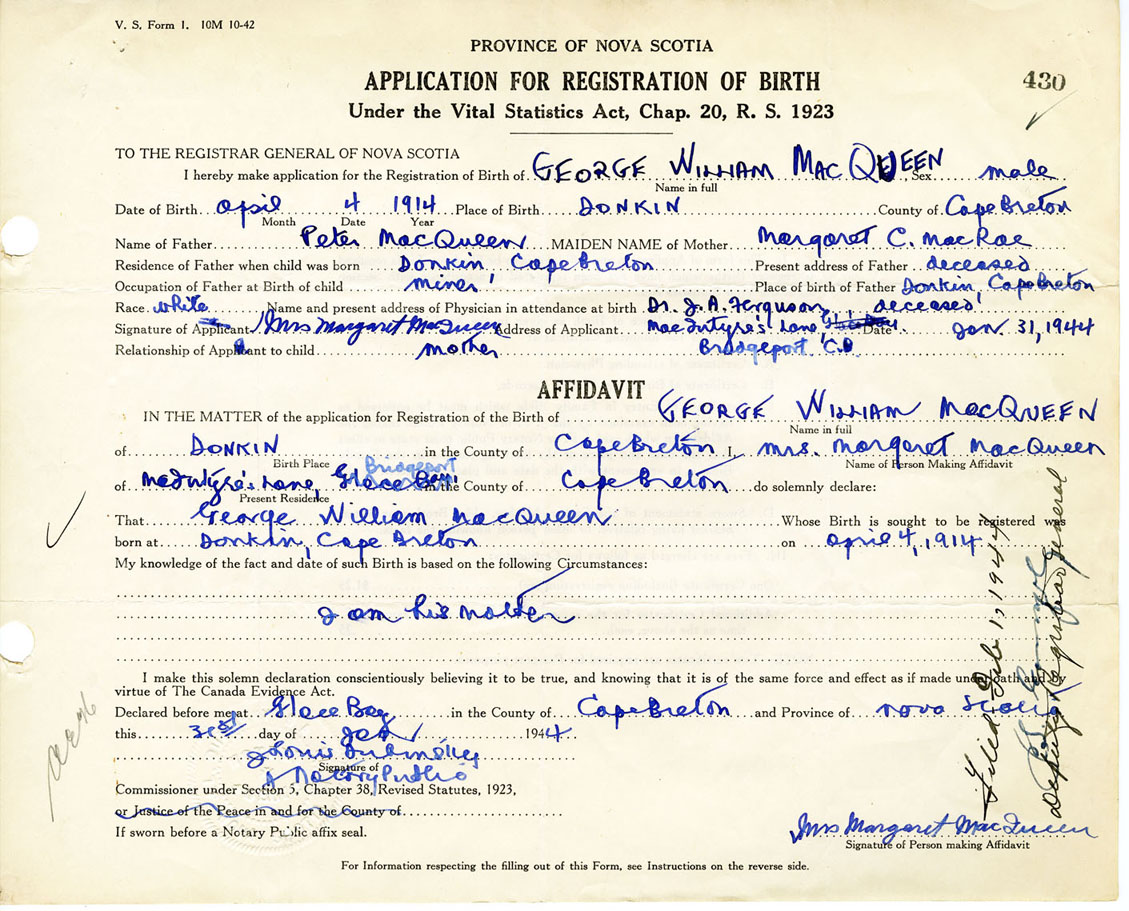 V. S. Form 1. 10M 10-42
PROVINCE OF NOVA SCOTIA
APPLICATION FOR REGISTRATION OF BIRTH
430
Under the Vital Statistics Act, Chap. 20, R. S. 1923
TO THE REGISTRAR GENERAL OF NOVA SCOTIA
I hereby make application for the Registration of Birth of GEORGE WILLIAM MACQUEEN, Sex male
Name in full
Date of Birth April 4 1914 Place of Birth DONKIN County of Cape Breton
Month Date Year
Name of Father Peter MacQueen MAIDEN NAME of Mother Margaret C. MacRae
Residence of Father when child was born Donkin, Cape Breton Present address of Father deceased
Occupation of Father at Birth of child miner Place of birth of Father Donkin, Cape Breton
Race white Name and present address of Physician in attendance at birth Dr. J. A. Ferguson, deceased
Signature of Applicant Mrs Margaret MacQueen Address of Applicant MacIntyre's Lane, Date Jan. 31, 1944
Relationship of Applicant to child mother Bridgeport, C.B.
AFFIDAVIT
IN THE MATTER of the application for Registration of the Birth of GEORGE WILLIAM MACQUEEN
Name in full
of DONKIN in the County of Cape Breton I, Mrs. Margaret MacQueen
Birth Place Name of Person Making Affidavit
Bridgeport
of MacIntyre's Lane, Glace Bay in the County of Cape Breton do solemnly declare:
Present Residence
That George William MacQueen Whose Birth is sought to be registered was
born at Donkin, Cape Breton on April 4, 1914
My knowledge of the fact and date of such Birth is based on the following Circumstances:
I am his mother
I make this solemn declaration conscientiously believing it to be true, and knowing that it is of the same force and effect as if made under oath and by
virtue of The Canada Evidence Act.
Declared before me at Glace Bay in the County of Cape Breton and Province of Nova Scotia
this 31st day of Jan 1944
J Louis Dubinsky
Signature of
A Notary Public
Commissioner under Section 5, Chapter 38, Revised Statutes, 1923,
or Justice of the Peace in and for the County of
If sworn before a Notary Public affix seal.
Mrs Margaret MacQueen
Signature of Person making Affidavit
For Information respecting the filling out of this Form, see Instructions on the reverse side.
Filed Feb 1, 1944
Deputy Registrar General